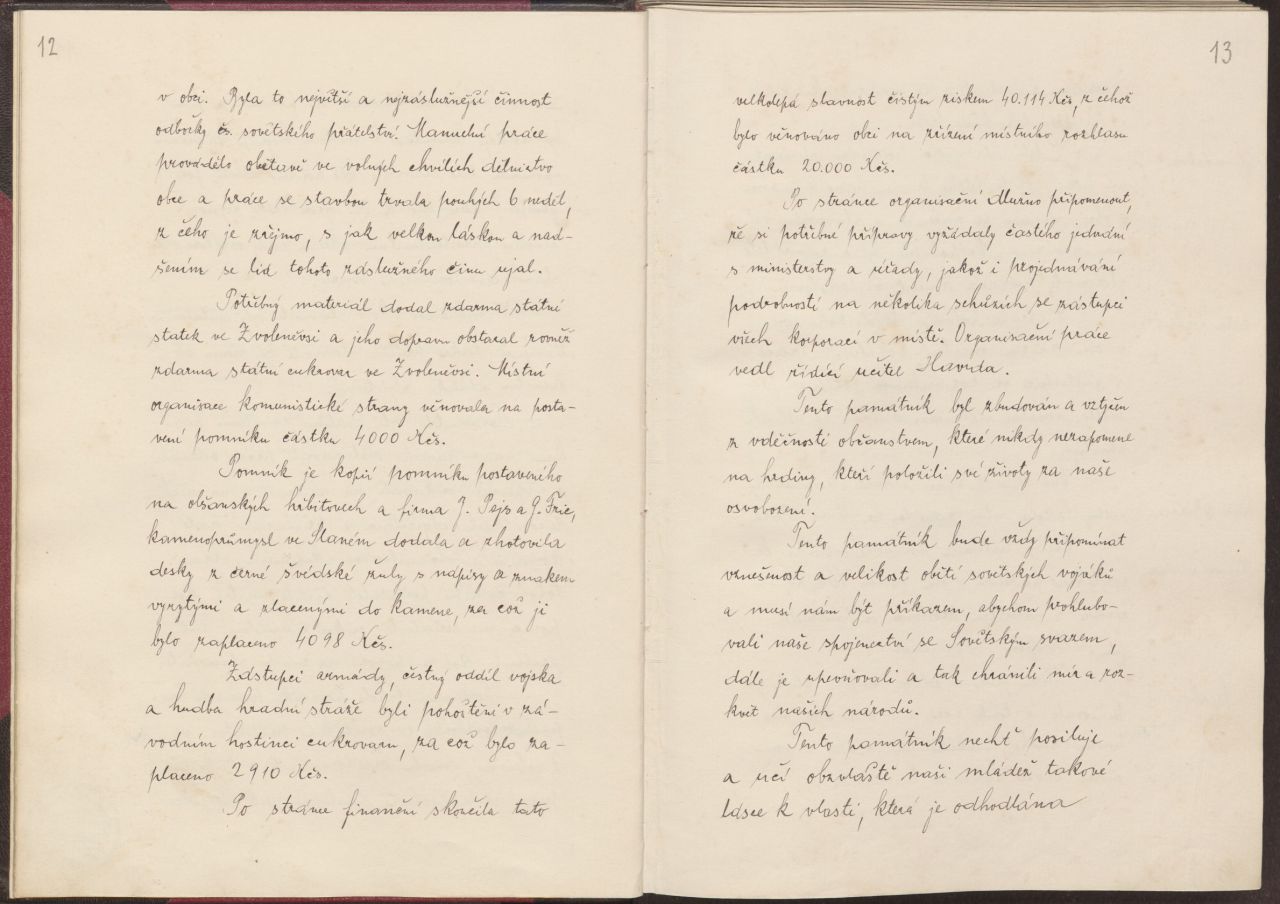 12
v obci. Byla to největší a nejzáslužnější činnost
odbočky čs. sovětského přátelství. Manuelní práce
provádělo obětavě ve volných chvílích dělnictvo
obce a práce se stavbou trvala pouhých 6 neděl,
z čeho je zřejmo, s jak velkou láskou a nad-
šením se lid tohoto záslužného činu ujal.
Potřebný materiál dodal zdarma státní
statek ve Zvoleněvsi a jeho dopravu obstaral rovněž
zdarma státní cukrovar ve Zvoleněvsi. Místní
organisace komunistické strany věnovala na posta-
vení pomníku částku 4000 Kčs.
Pomník je kopií pomníku postaveného
na olšanských hřbitovech a firma J. Pejs a G. Fric,
kamenoprůmysl ve Slaném dodala a zhotovila
desky z černé švédské žuly s nápisy a znakem
vyrytými a zlacenými do kamene, za což jí
bylo zaplaceno 4098 Kčs.
Zástupci armády, čestný oddíl vojska
a hudba hradní stráže byli pohoštěni v zá-
vodním hostinci cukrovaru, za což bylo za-
placeno 2910 Kčs.
Po stránce finanční skončila tato
13
velkolepá slavnost čistým ziskem 40.114 Kčs, z čehož
bylo věnováno obci na zřízení místního rozhlasu
částku 20.000 Kčs.
Po stránce organisační dlužno připomenout,
že si potřebné přípravy vyžádaly častého jednání
s ministerstvy a úřady, jakož i projednávání
podrobností na několika schůzích se zástupci
všech korporací v místě. Organisační práce
vedl řídící učitel Havrda.
Tento památník byl zbudován a vztyčen
z vděčnosti občanstvem, které nikdy nezapomene
na hrdiny, kteří položili své životy za naše
osvobození.
Tento památník bude vždy připomínat
vznešenost a velikost obětí sovětských vojáků
a musí nám být příkazem, abychom prohlubo-
vali naše spojenectví se Sovětským svazem,
dále je upevňovali a tak chránili mír a roz-
květ našich národů.
Tento památník nechť posiluje
a učí obzvláště naši mládež takové
lásce k vlasti, která je odhodlána